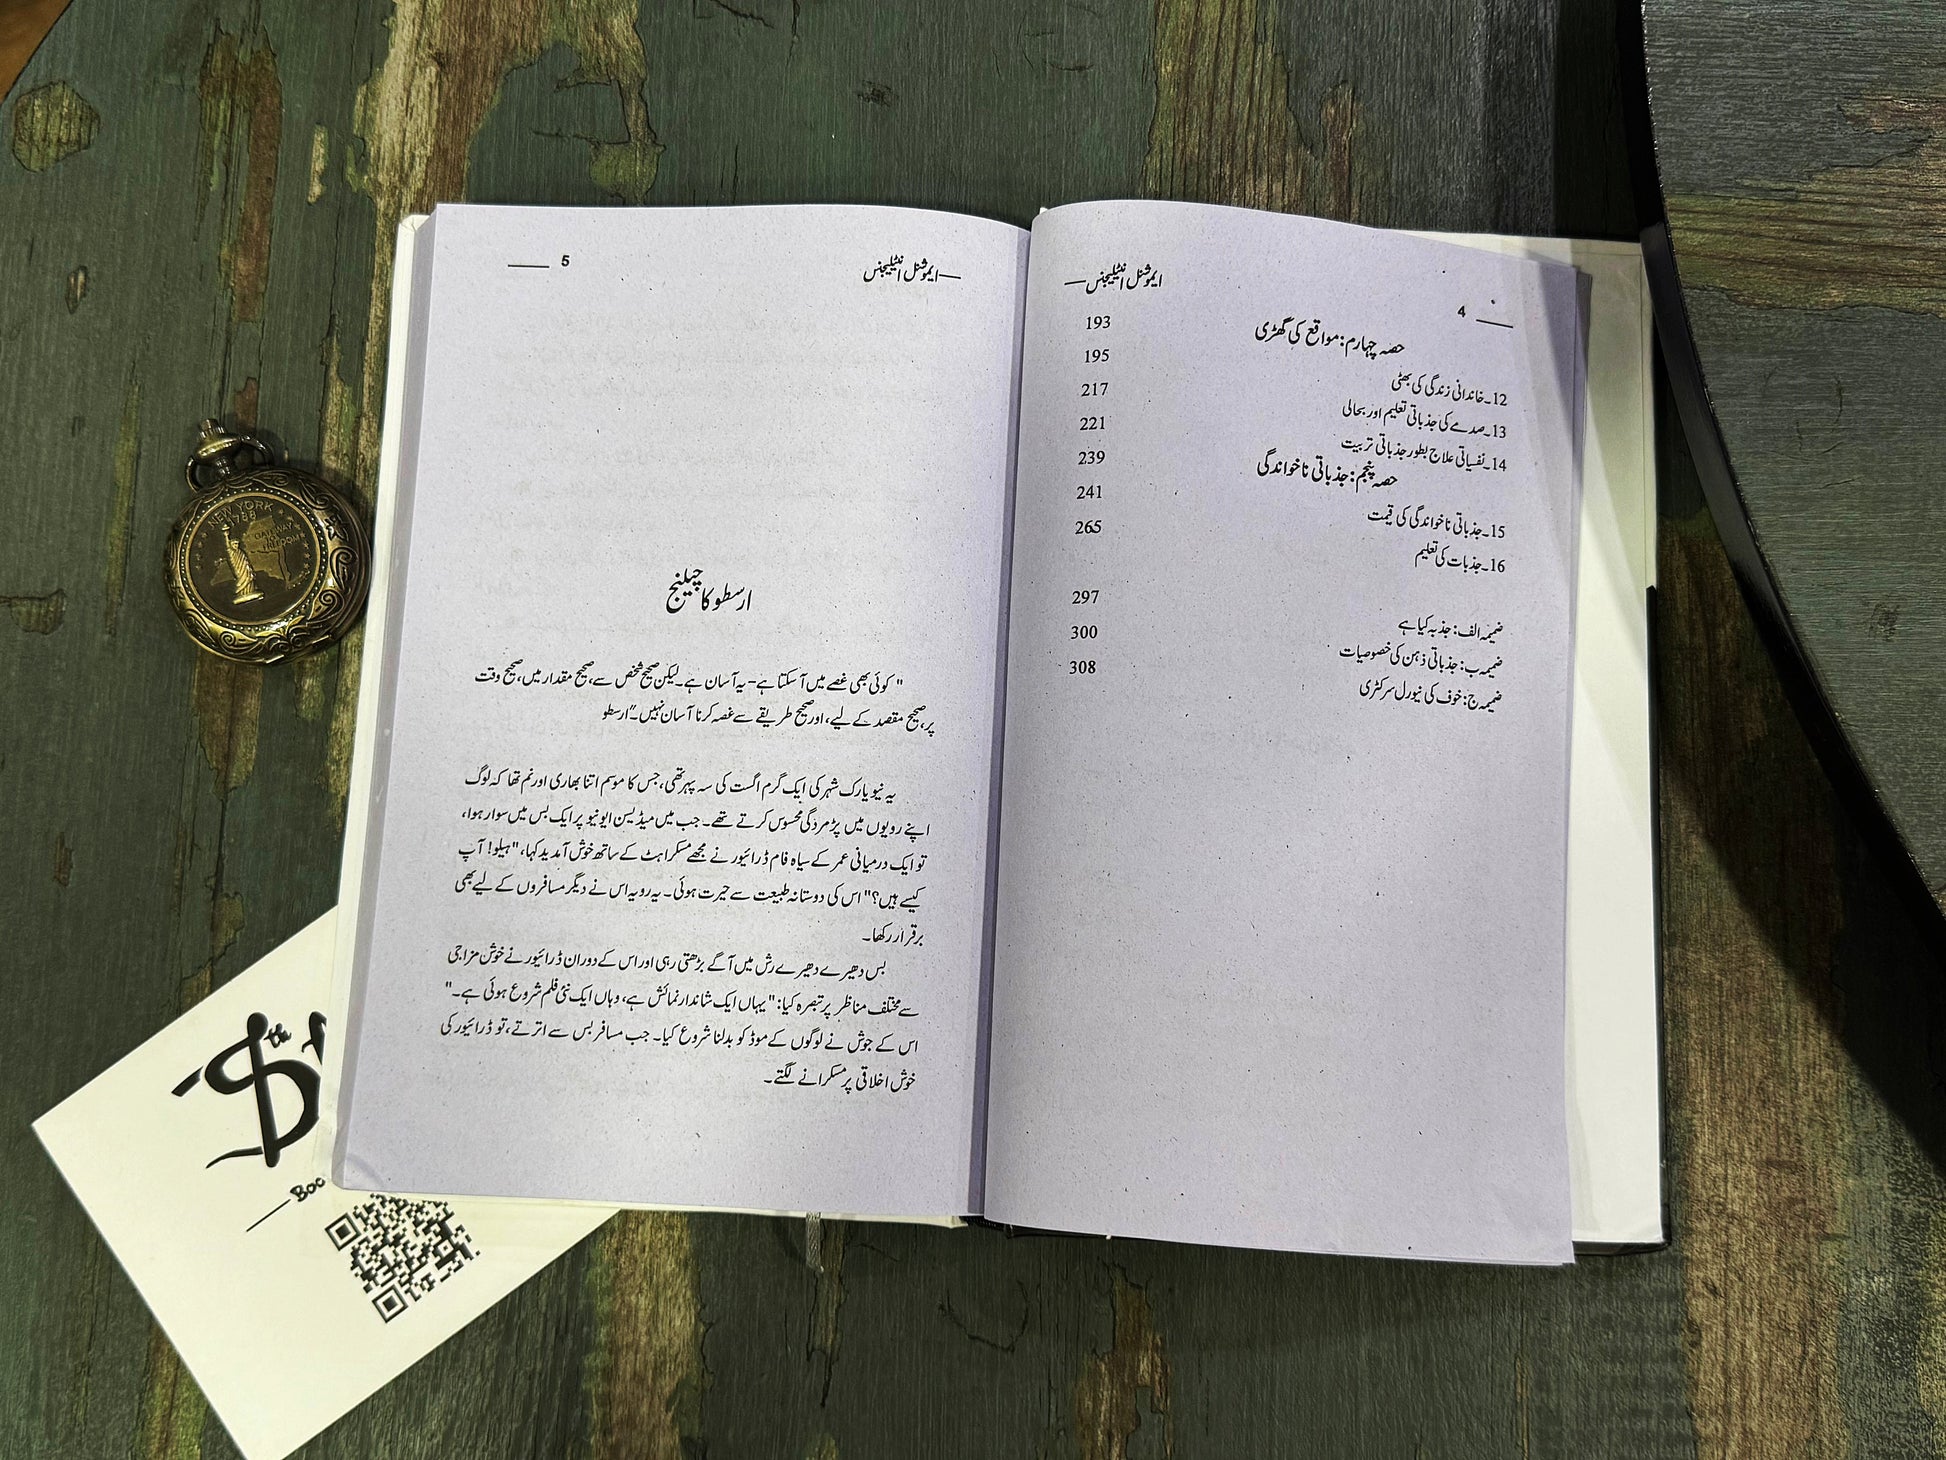 4
ایموشنل انٹیلیجنس
حصہ چہارم: مواقع کی گھڑی 193
12۔خاندانی زندگی کی بھٹی 195
13۔صدمے کی جذباتی تعلیم اور بحالی 217
14۔نفسیاتی علاج بطور جذباتی تربیت 221
حصہ پنجم: جذباتی ناخواندگی 239
15۔جذباتی ناخواندگی کی قیمت 241
16۔جذبات کی تعلیم 265
ضمیمہ الف: جذبہ کیا ہے 297
ضمیمہ ب: جذباتی ذہن کی خصوصیات 300
ضمیمہ ج: خوف کی نیورل سرکٹری 308
ایموشنل انٹیلیجنس
5
ارسطو کا چیلنج
" کوئی بھی غصے میں آ سکتا ہے- یہ آسان ہے۔ لیکن صحیح شخص سے، صحیح مقدار میں، صحیح وقت
پر، صحیح مقصد کے لیے، اور صحیح طریقے سے غصہ کرنا آسان نہیں۔" ارسطو
یہ نیویارک شہر کی ایک گرم اگست کی سہ پہر تھی، جس کا موسم اتنا بھاری اور نم تھا کہ لوگ
اپنے رویوں میں پژمردگی محسوس کرتے تھے۔ جب میں میڈیسن ایونیو پر ایک بس میں سوار ہوا،
تو ایک درمیانی عمر کے سیاہ فام ڈرائیور نے مجھے مسکراہٹ کے ساتھ خوش آمدید کہا، "ہیلو! آپ
کیسے ہیں؟" اس کی دوستانہ طبیعت سے حیرت ہوئی۔ یہ رویہ اس نے دیگر مسافروں کے لیے بھی
برقرار رکھا۔
بس دھیرے دھیرے رش میں آگے بڑھتی رہی اور اس کے دوران ڈرائیور نے خوش مزاجی
سے مختلف مناظر پر تبصرہ کیا: "یہاں ایک شاندار نمائش ہے، وہاں ایک نئی فلم شروع ہوئی ہے۔"
اس کے جوش نے لوگوں کے موڈ کو بدلنا شروع کیا۔ جب مسافر بس سے اترتے، تو ڈرائیور کی
خوش اخلاقی پر مسکرانے لگتے۔
NEW YORK
1788
GATEWAY
TO
FREEDOM
th
Boo